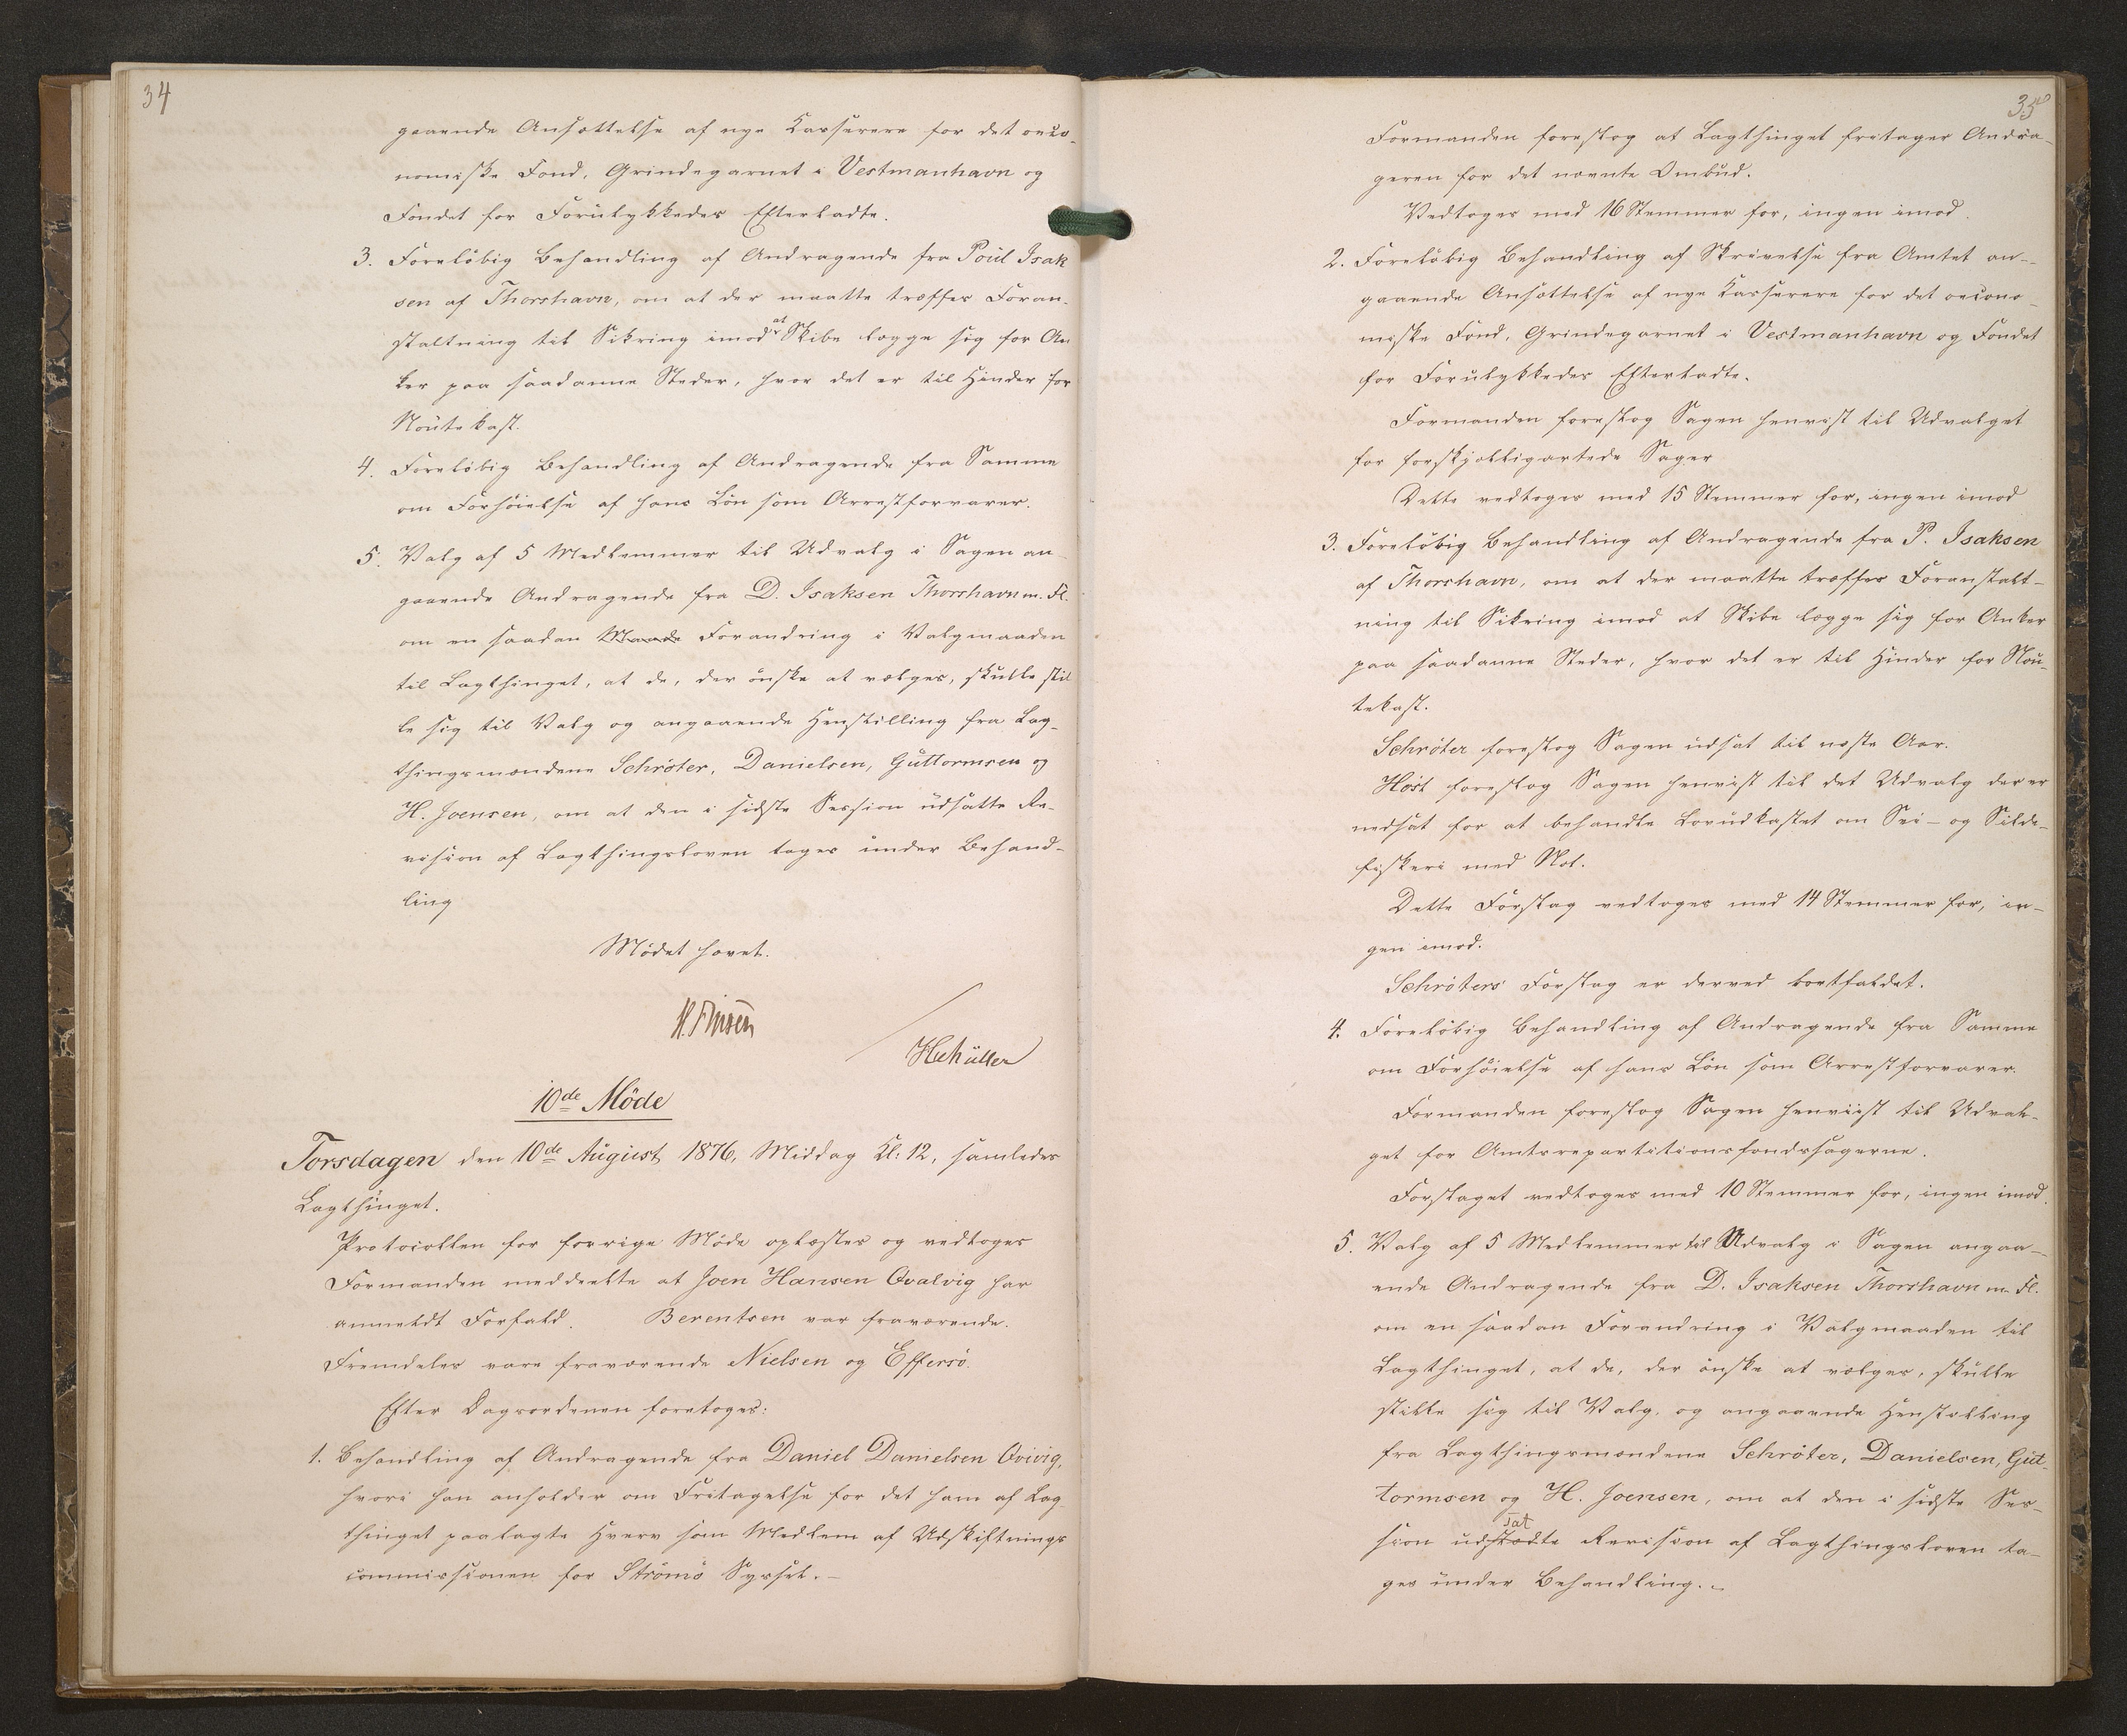 34
gaaende Ansættelse af nye Kasserere for det oeco-
nomiske Fond, Grindegarnet i Vestmanhavn og
Fondet for Forulykkedes Efterladte.
3. Foreløbig Behandling af Andragende fra Poul Isak
sen af Thorshavn, om at der maatte træffes Foran-
staltning til Sikring imod at Skibe lægge sig for An
ker paa saadanne Steder, hvor det er til Hinder for
Noutekast.
4. Foreløbig Behandling af Andragende fra Samme
om Forhøielse af hans Løn som Arrestforvarer.
5. Valg af 5 Medlemmer til Udvalg i Sagen an
gaaende Andragende fra D. Isaksen Thorshavn m. Fl.
om en saadan Maade Forandring i Valgmaaden
til Lagthinget, at de, der ønske at vælges, skulle stil
le sig til Valg og angaaende Henstilling fra Lag-
thingsmændene Schrøter, Danielsen, Guttormsen og
H. Joensen, om at den i sidste Session udsatte Re-
vision af Lagthingsloven tages under Behand-
ling
Mødet hævet.
H. Finsen
HMüller
10de Møde
Torsdagen den 10de August 1876, Middag Kl: 12, samledes
Lagthinget.
Protocollen for forrige Møde oplæstes og vedtoges
Formanden meddeelte at Joen Hansen Qvalvig har
anmeldt Forfald. Berentsen var fraværende.
Fremdeles vare fraværende Nielsen og Effersø.
Efter Dagsordenen foretoges:
1. Behandling af Andragende fra Daniel Danielsen Qvivig,
hvori han anholder om Fritagelse for det ham af Lag
thinget paalagte Hverv som Medlem af Udskiftnings
commissionen for Strømø Syssel.-
35
Formanden foreslog at Lagthinget fritager Andra-
geren for det nævnte Ombud.
Vedtoges med 16 Stemmer for, ingen imod.
2. Foreløbig Behandling af Skrivelse fra Amtet an-
gaaende Ansættelse af nye Kasserere for det oecono-
miske Fond, Grindegarnet i Vestmanhavn og Fondet
for Forulykkedes Efterladte.
Formanden foreslog Sagen henvist til Udvalget
for forskjelligartede Sager
Dette vedtoges med 15 Stemmer for, ingen imod
3. Foreløbig Behandling af Andragende fra P. Isaksen
af Thorshavn, om at der maatte træffes Foranstalt-
ning til Sikring imod at Skibe lægge sig for Anker
paa saadanne Steder, hvor det er til Hinder for Nou-
tekast.
Schrøter foreslog Sagen udsat til næste Aar.
Høst foreslog Sagen henvist til det Udvalg der er
nedsat for at behandle Lovudkastet om Sei- og Silde-
fiskeri med Not.
Dette Forslag vedtoges med 14 Stemmer for, in-
gen imod.
Schrøters Forslag er derved bortfaldet.
4. Foreløbig Behandling af Andragende fra Samme
om Forhøielse af hans Løn som Arrestforvarer.
Formanden foreslog Sagen henviist til Udval-
get for Amtsrepartitionsfondssagerne.
Forslaget vedtoges med 10 Stemmer for, ingen imod.
5. Valg af 5 Medlemmer til Udvalg i Sagen angaa-
ende Andragende fra D. Isaksen Thorshavn m. Fl.
om en saadan Forandring i Valgmaaden til
Lagthinget, at de, der ønske at vælges, skulle
stille sig til Valg, og angaaende Henstilling
fra Lagthingsmændene Schrøter, Danielsen, Gut-
tormsen og H. Joensen, om at den i sidste Ses-
sat
sion udstædte Revision af Lagthingsloven ta-
ges under Behandling.-